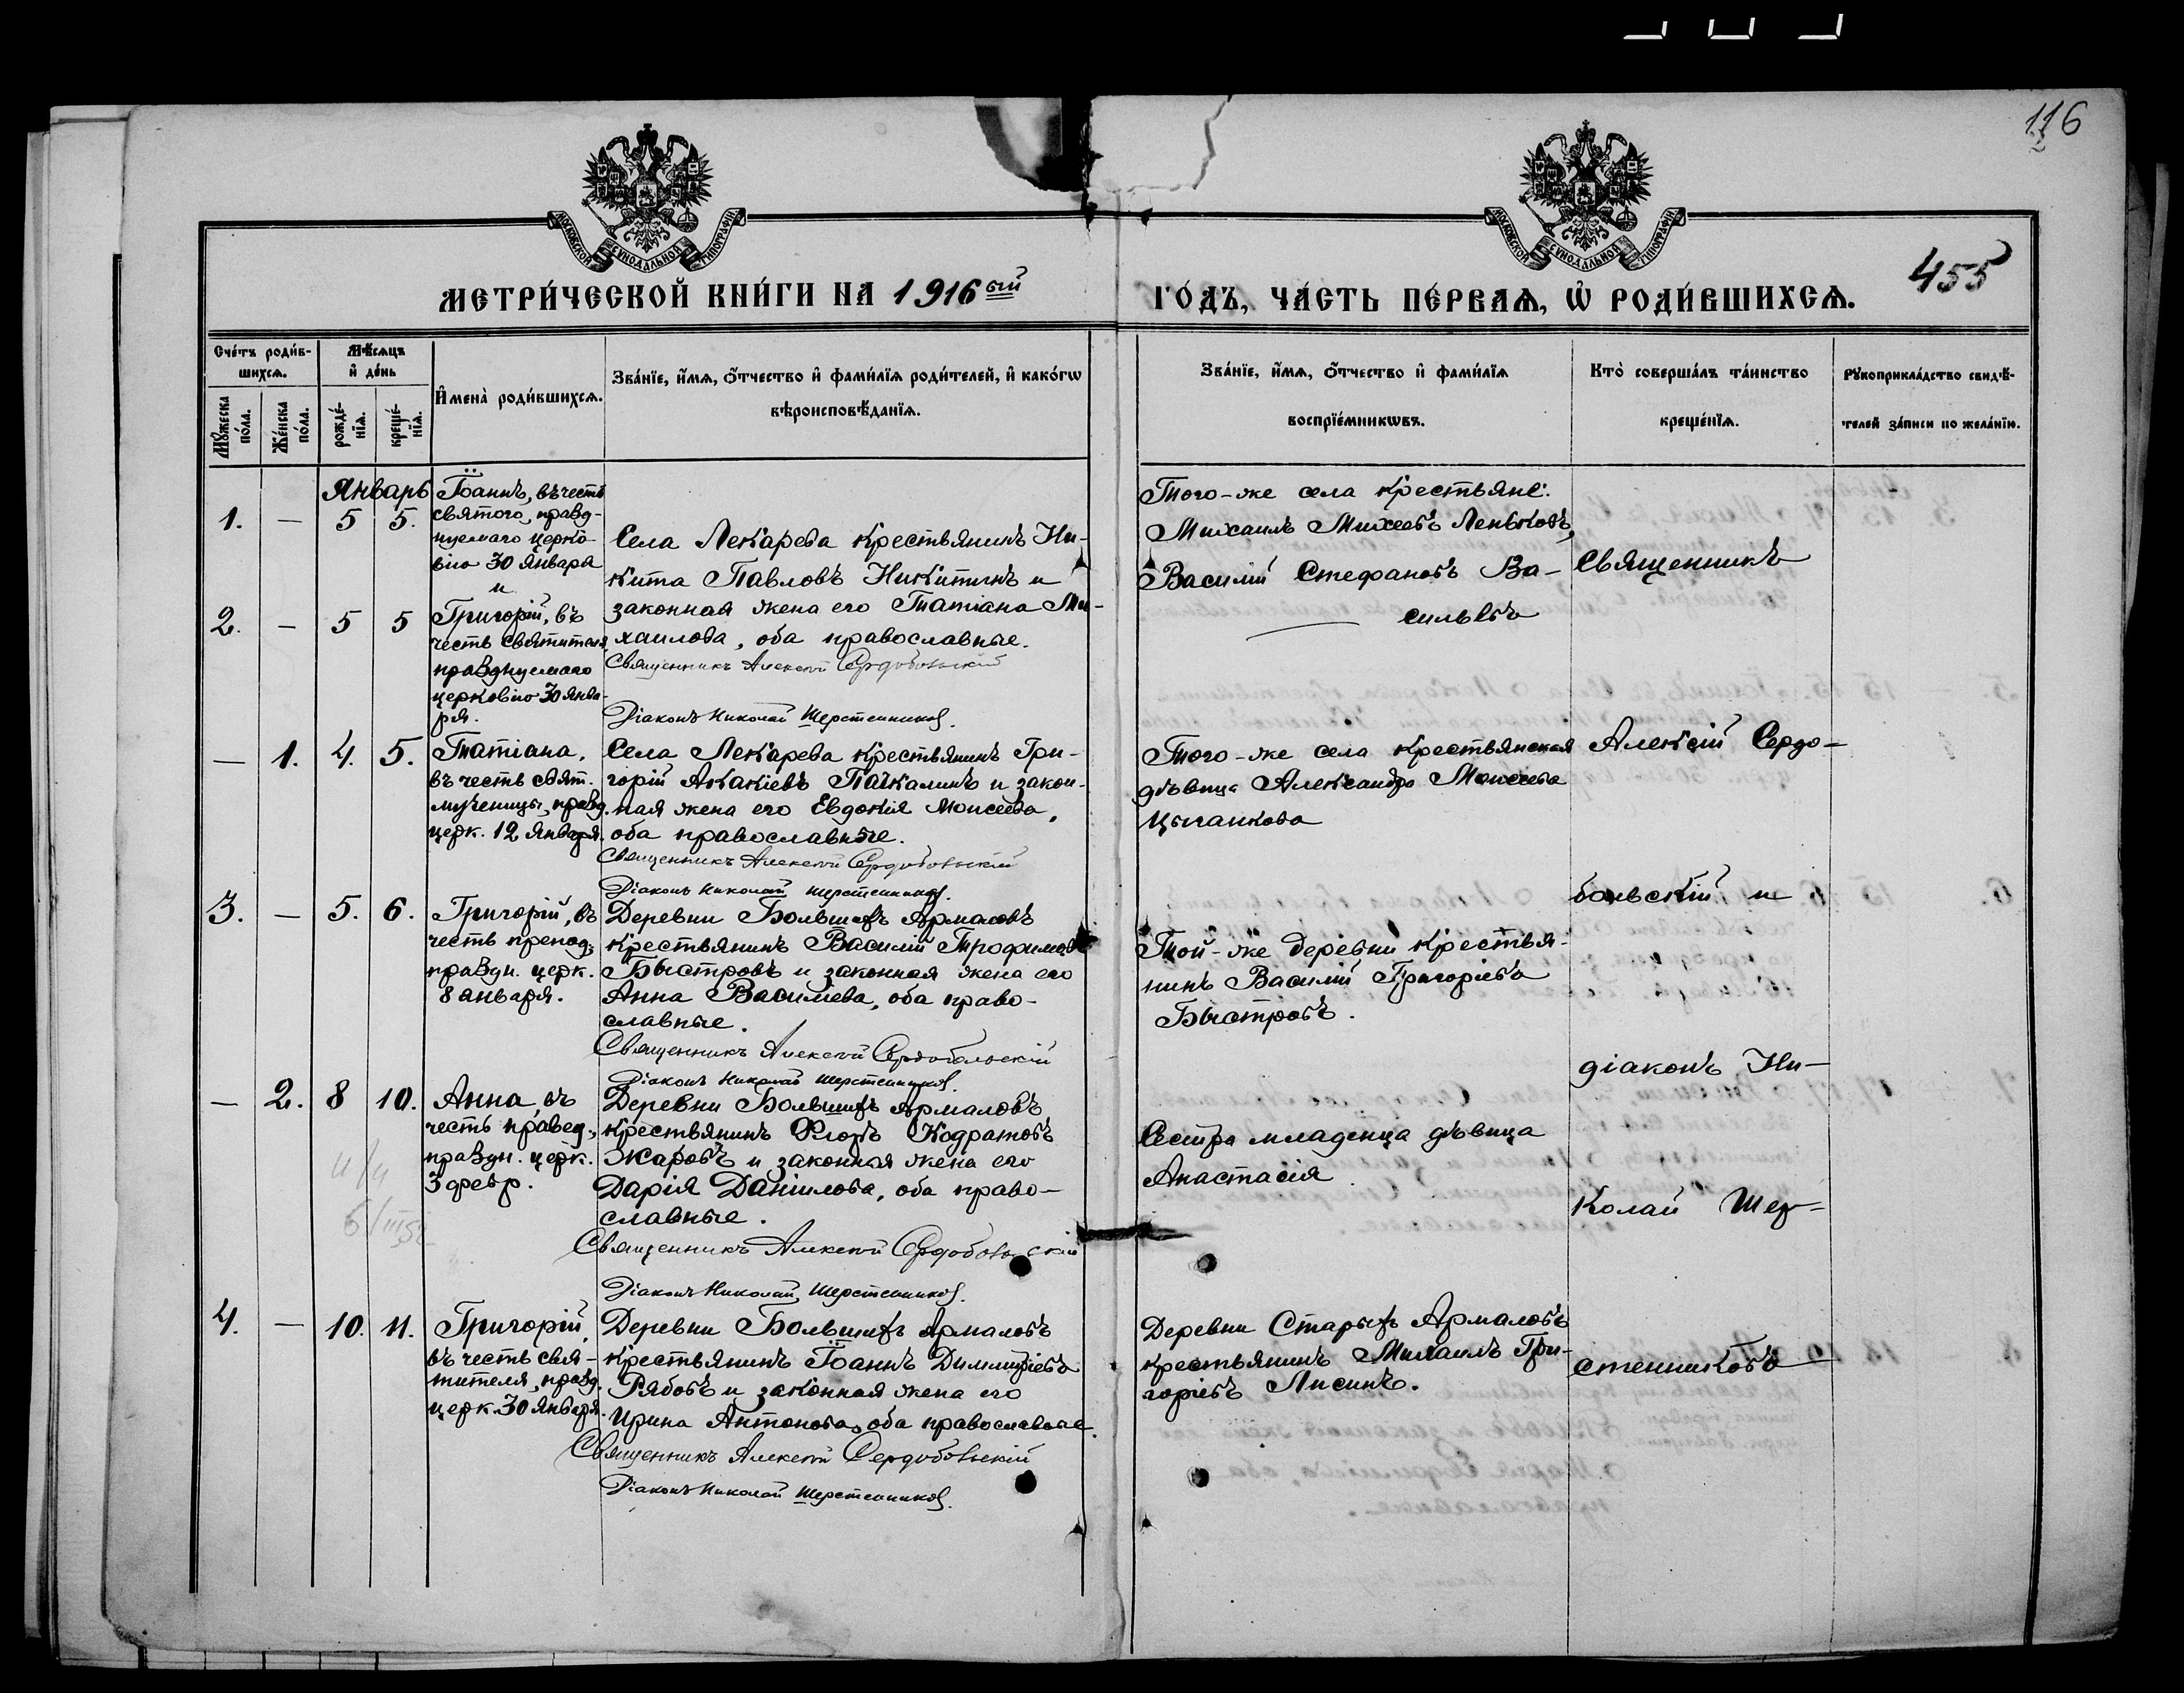 116
455
МОСКОВСКОЙ СѴНОДАЛЬНОЙ ТИПОГРАФІИ
МОСКОВСКОЙ СѴНОДАЛЬНОЙ ТИПОГРАФІИ
МЕТРИ́ЧЕСКОЙ КНИ́ГИ НА 1916 ый ГО́ДЪ, ЧА́СТЬ ПЕ́РВАѦ, Ѡ҆ РОДИ́ВШИХСѦ.
Сче́тъ роди́в-
шихсѧ.
Мѣ́сѧцъ
и҆ де́нь
Мꙋ́жеска
по́ла.
Же́нска
по́ла.
рожде́-
нїѧ.
креще́-
нїѧ.
И҆мена̀ роди́вшихсѧ.
Зва́нїе, и҆́мѧ, ѻ҆́тчество и҆ фами́лїѧ роди́телей, и҆ како́гѡ
вѣроисповѣ́данїѧ.
Зва́нїе, и҆́мѧ, ѻ҆́тчество и҆ фами́лїѧ
воспрїе́мникѡвъ.
Кто̀ соверша́лъ та́инство
креще́нїѧ.
Рꙋкоприкла́дство свидѣ́-
телей за́писи по жела́нїю.
Январь
1. — 5 5.
Іоаннъ, въ честь
святого, празд-
нуемаго церко-
вію 30 января
и
2. — 5 5
Григорій, въ
честь святителя,
празднуемаго
церковію 30 янва-
ря.
Села Лекарева крестьянинъ Ни-
кита Павловъ Никитинъ и
законная жена его Татіана Ми-
хаилова, оба православные.
Священникъ Алексій Сердобольскій
Діаконъ Николай Шерстенниковъ.
Того-же села крестьяне:
Михаилъ Михеевъ Леньковъ,
Василій Стефановъ Ва-
сильевъ
Священникъ
— 1. 4. 5.
Татіана,
въ честь свят.
мученицы, празд.
церк. 12 января.
Села Лекарева крестьянинъ Гри-
горій Акакіевъ Пайкалинъ и закон-
ная жена его Евдокія Моисеева,
оба православные.
Священникъ Алексій Сердобольскій
Діаконъ Николай Шерстенниковъ.
Того-же села крестьянская
дѣвица Александра Моисеева
Цыганкова
Алексій Сердо-
3. — 5. 6.
Григорій, въ
честь препод.,
праздн. церк.
8 января.
Деревни Большихъ Армаловъ
крестьянинъ Василій Трофимовъ
Быстровъ и законная жена его
Анна Василіева, оба право-
славные.
Священникъ Алексій Сердобольскій
Діаконъ Николай Шерстенниковъ.
Той-же деревни крестья-
нинъ Василій Григоріевъ
Быстровъ.
больскій и
діаконъ Ни-
— 2. 8 10.
Анна, въ
честь правед.,
праздн. церк.
3 февр.
Деревни Большихъ Армаловъ
крестьянинъ Флоръ Кодратовъ
Жаровъ и законная жена его
Дарія Даніилова, оба право-
славные.
Священникъ Алексій Сердобольскій
Діаконъ Николай Шерстенниковъ.
Сестра младенца дѣвица
Анастасія.
колай Шер-
4. — 10. 11.
Григорій,
въ честь свя-
тителя, празд.
церк. 30 января.
Деревни Большихъ Армаловъ
крестьянинъ Іоаннъ Димитріевъ
Рябовъ и законная жена его
Ирина Антонова, оба православные.
Священникъ Алексій Сердобольскій
Діаконъ Николай Шерстенниковъ.
Деревни Старыхъ Армаловъ
крестьянинъ Михаилъ Гри-
горіевъ Лисинъ.
стенниковъ